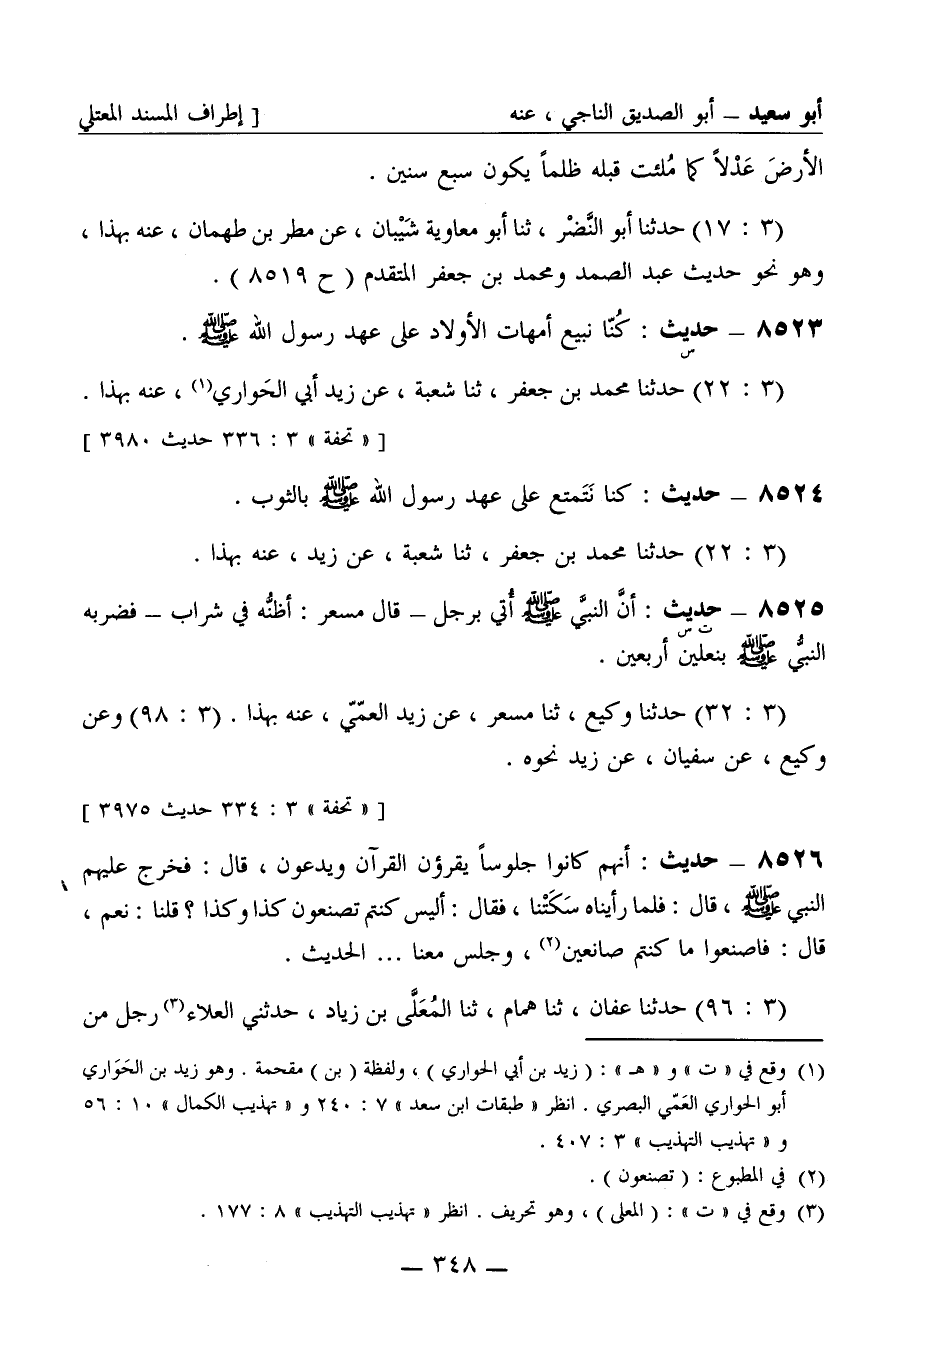 أبو سعيد – أبو الصديق الناجي ، عنه [ إطراف المسند المعتلي
الأرضَ عَدْلاً كما مُلئت قبله ظلماً يكون سبع سنين .
(٣ : ١٧) حدثنا أبو النَّضْر ، ثنا أبو معاوية شَيْبان ، عن مطر بن طهمان ، عنه بهذا ،
وهو نحو حديث عبد الصمد ومحمد بن جعفر المتقدم ( ح ٨٥١٩ ) .
٨٥٢٣ – حديث : كُنّا نبيع أمهات الأولاد على عهد رسول الله ﷺ .
س
(٣ : ٢٢) حدثنا محمد بن جعفر ، ثنا شعبة ، عن زيد أبي الحَواري(١) ، عنه بهذا .
[ « تحفة » ٣ : ٣٣٦ حديث ٣٩٨٠ ]
٨٥٢٤ – حديث : كنا نَتَمتع على عهد رسول الله ﷺ بالثوب .
(٣ : ٢٢) حدثنا محمد بن جعفر ، ثنا شعبة ، عن زيد ، عنه بهذا .
٨٥٢٥ – حديث : أنَّ النبيَّ ﷺ أُتي برجل – قال مسعر : أظنُّه في شراب – فضربه
ت س
النبيُّ ﷺ بنعلين أربعين .
(٣ : ٣٢) حدثنا وكيع ، ثنا مسعر ، عن زيد العمّيّ ، عنه بهذا . (٣ : ٩٨) وعن
وكيع ، عن سفيان ، عن زيد نحوه .
[ « تحفة » ٣ : ٣٣٤ حديث ٣٩٧٥ ]
٨٥٢٦ – حديث : أنهم كانوا جلوساً يقرؤن القرآن ويدعون ، قال : فخرج عليهم
النبي ﷺ ، قال : فلما رأيناه سَكَتْنا ، فقال : أليس كنتم تصنعون كذا وكذا ؟ قلنا : نعم ،
قال : فاصنعوا ما كنتم صانعين(٢) ، وجلس معنا ... الحديث .
(٣ : ٩٦) حدثنا عفان ، ثنا همام ، ثنا المُعَلَّى بن زياد ، حدثني العلاء(٣) رجل من
(١) وقع في « ت » و « هـ » : ( زيد بن أبي الحواري ) ، ولفظة ( بن ) مقحمة . وهو زيد بن الحَوَاري
أبو الحواري العَمّي البصري . انظر « طبقات ابن سعد » ٧ : ٢٤٠ و « تهذيب الكمال » ١٠ : ٥٦
و « تهذيب التهذيب » ٣ : ٤٠٧ .
(٢) في المطبوع : ( تصنعون ) .
(٣) وقع في « ت » : ( المعلى ) ، وهو تحريف . انظر « تهذيب التهذيب » ٨ : ١٧٧ .
– ٣٤٨ –